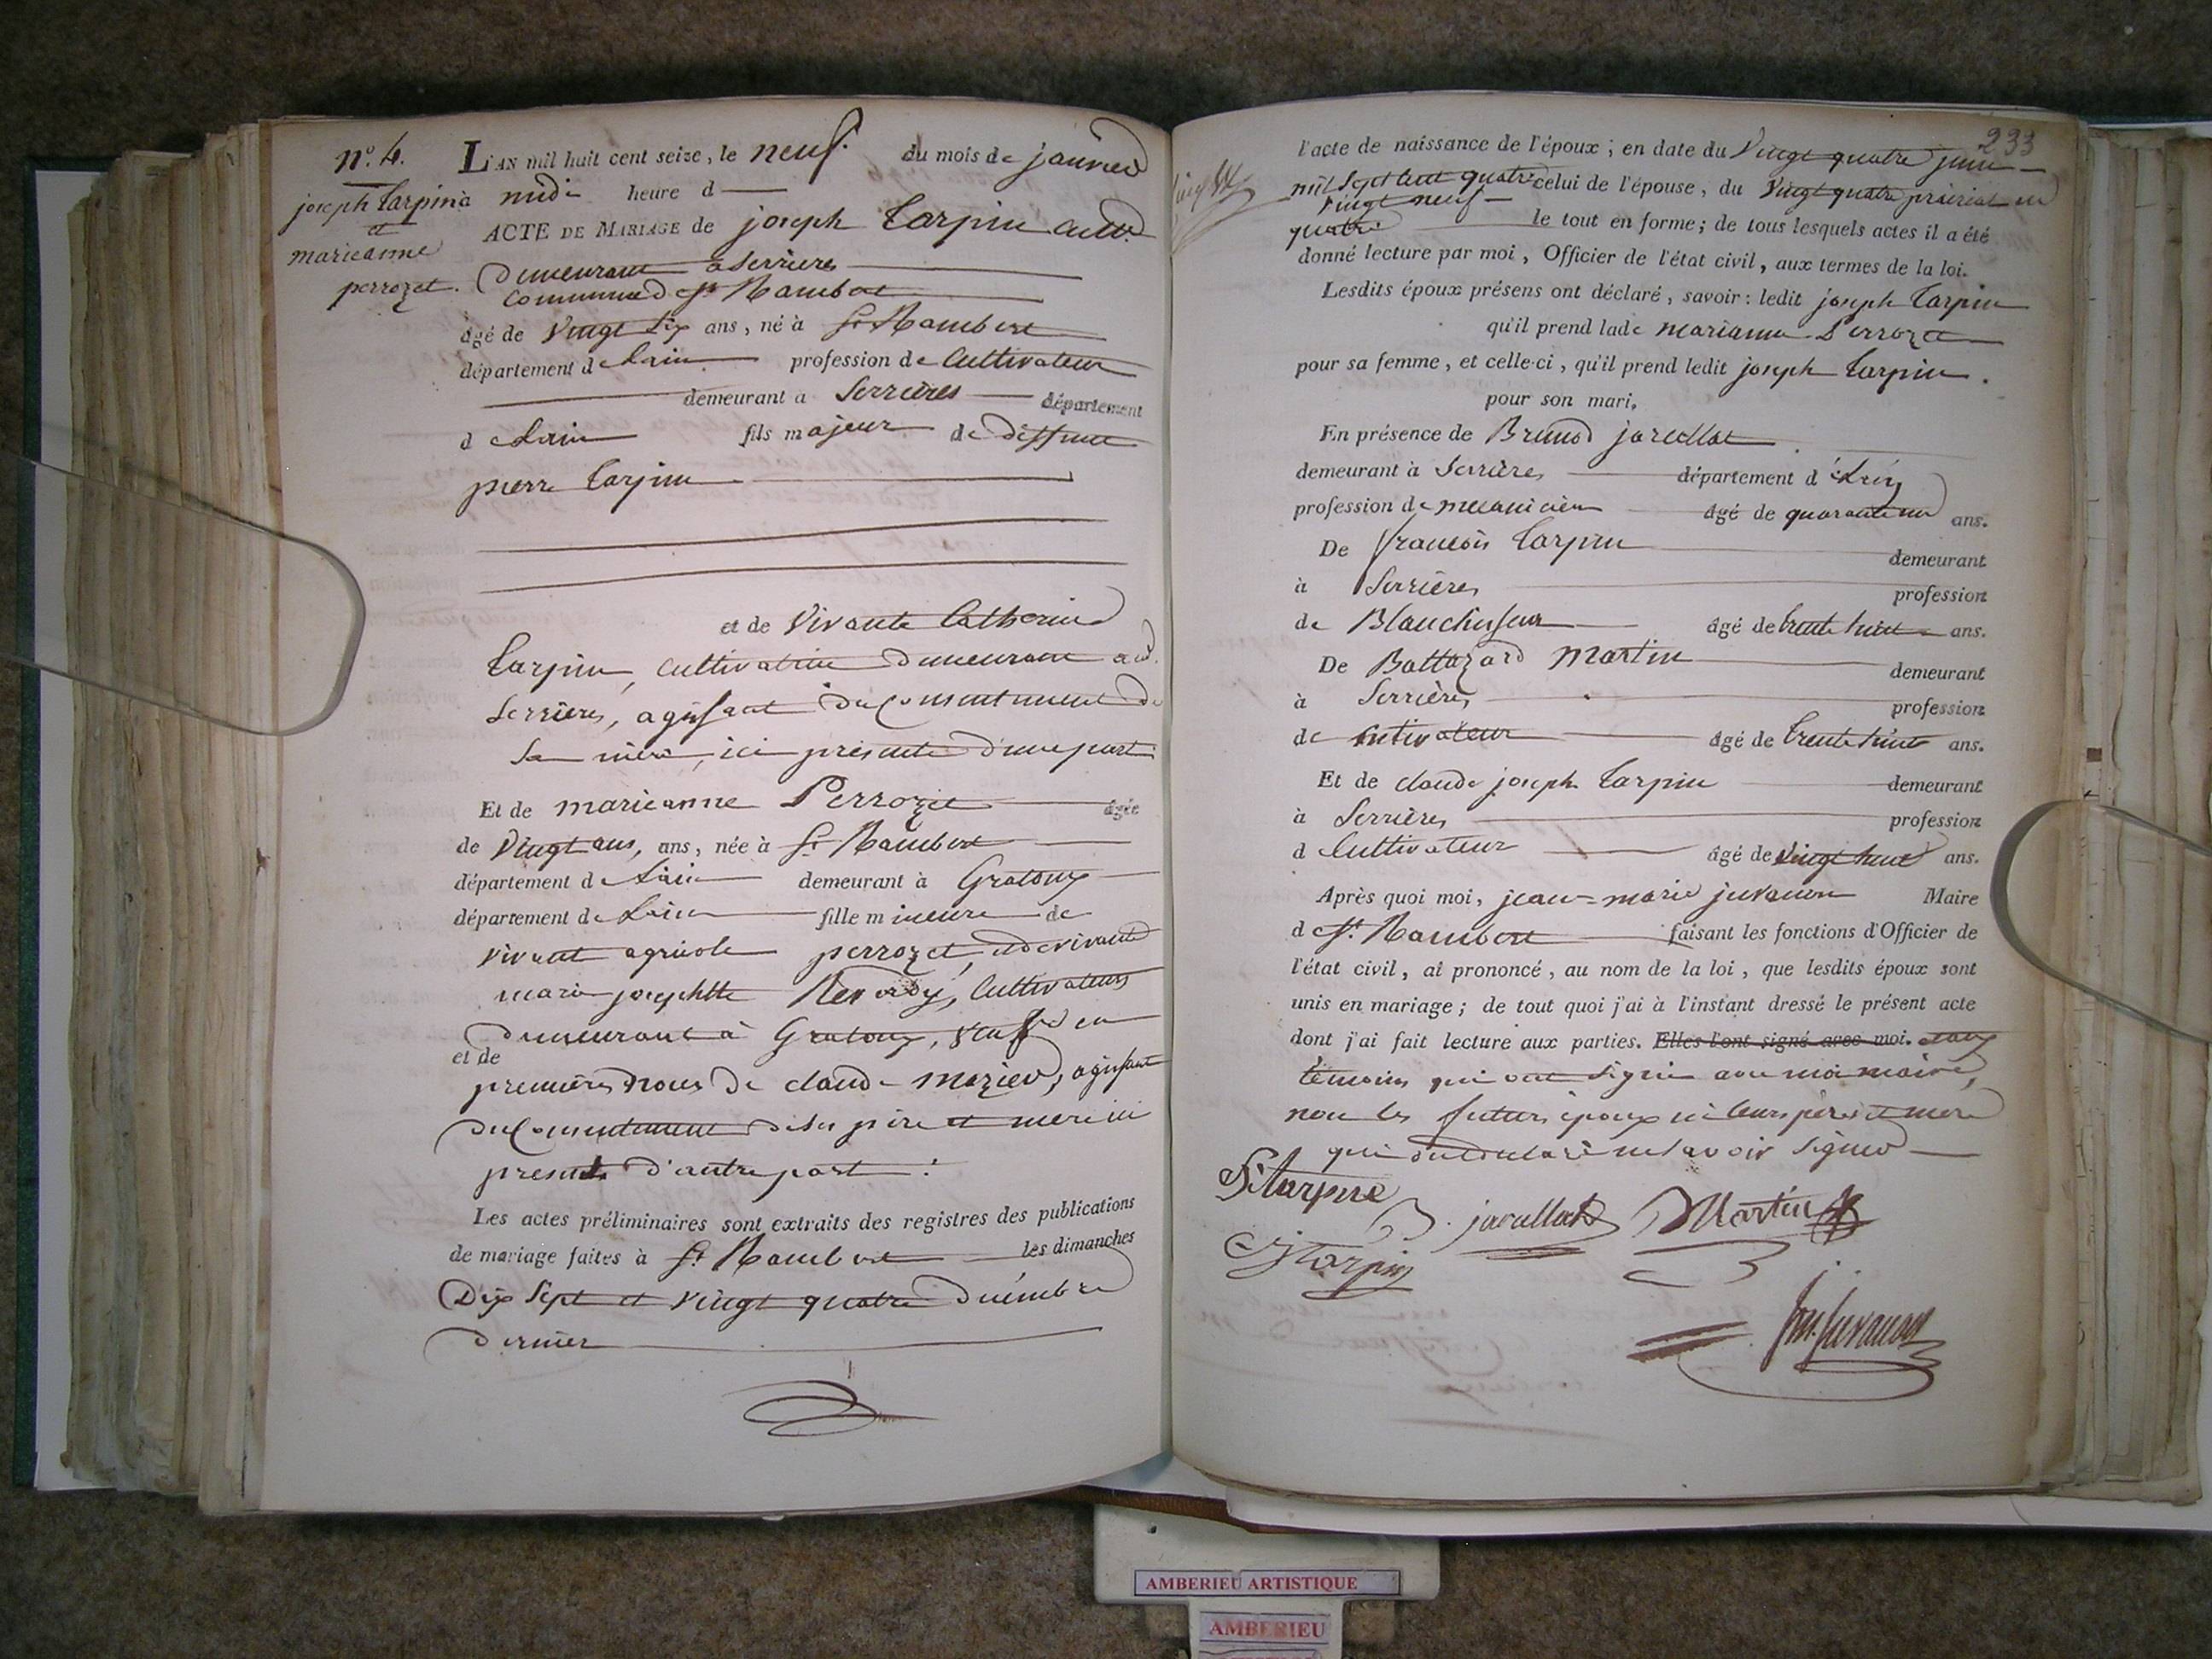 n°. 4.
joseph tarpin
et
marieanne
perrozet.
L'AN mil huit cent seize, le neuf du mois de janvier
à midi heure d
ACTE DE MARIAGE de joseph tarpin cultr.
demeurant à Serrieres
commune de St Rambert
âgé de vingt six ans, né à St Rambert
département de Lain profession de Cultivateur
demeurant à Serrières département
de Lain fils majeur de deffunt
pierre tarpin
et de vivante Catherine
tarpin, cultivatrice demeurant aud.
Serrières, agissant du consentement de
sa mère, ici présente d'une part
Et de marieanne Perrozet âgée
de vingt ans, ans, née à St Rambert
département de Lain demeurant à Gratoux
département de Lain fille mineure de
vivant agricole perrozet, et de vivante
marie josephtte Reverdy, Cultivateurs
demeurant à Gratoux, veuve en
et de
premières noces de claude mazier, agissant
du consentement de ses père et mère ici
presents d'autre part.
Les actes préliminaires sont extraits des registres des publications
de mariage faites à St Rambert les dimanches
Dix Sept et vingt quatre décembre
dernier
233
l'acte de naissance de l'époux; en date du vingt quatre juin
mil sept cent quatre celui de l'épouse, du vingt quatre prairial an
vingt neuf
quatre le tout en forme; de tous lesquels actes il a été
donné lecture par moi, Officier de l'état civil, aux termes de la loi.
Lesdits époux présens ont déclaré, savoir: ledit joseph tarpin
qu'il prend lade marianne Perrozet
pour sa femme, et celle-ci, qu'il prend ledit joseph tarpin.
pour son mari,
En présence de Bruno javellot
demeurant à Serrières département de Lain
profession de mecanicien âgé de quarante un ans.
De françois tarpin demeurant
à Serrières profession
de Blanchisseur âgé de trente huit ans.
De Baltazard Martin demeurant
à Serrières profession
de cultivateur âgé de trente huit ans.
Et de claude joseph tarpin demeurant
à Serrières profession
d Cultivateur âgé de vingt huit ans.
Après quoi moi, jean=marie juvanon Maire
de St. Rambert faisant les fonctions d'Officier de
l'état civil, ai prononcé, au nom de la loi, que lesdits époux sont
unis en mariage; de tout quoi j'ai à l'instant dressé le présent acte
dont j'ai fait lecture aux parties. Elles l'ont signé avec moi.
témoins qui ont signé avec moi maire,
non les futurs époux ni leurs père et mère
qui ont déclaré ne savoir signer
f. tarpin
B. javellot
Martin
C j tarpin
jm. juvanon
AMBERIEU ARTISTIQUE
AMBERIEU